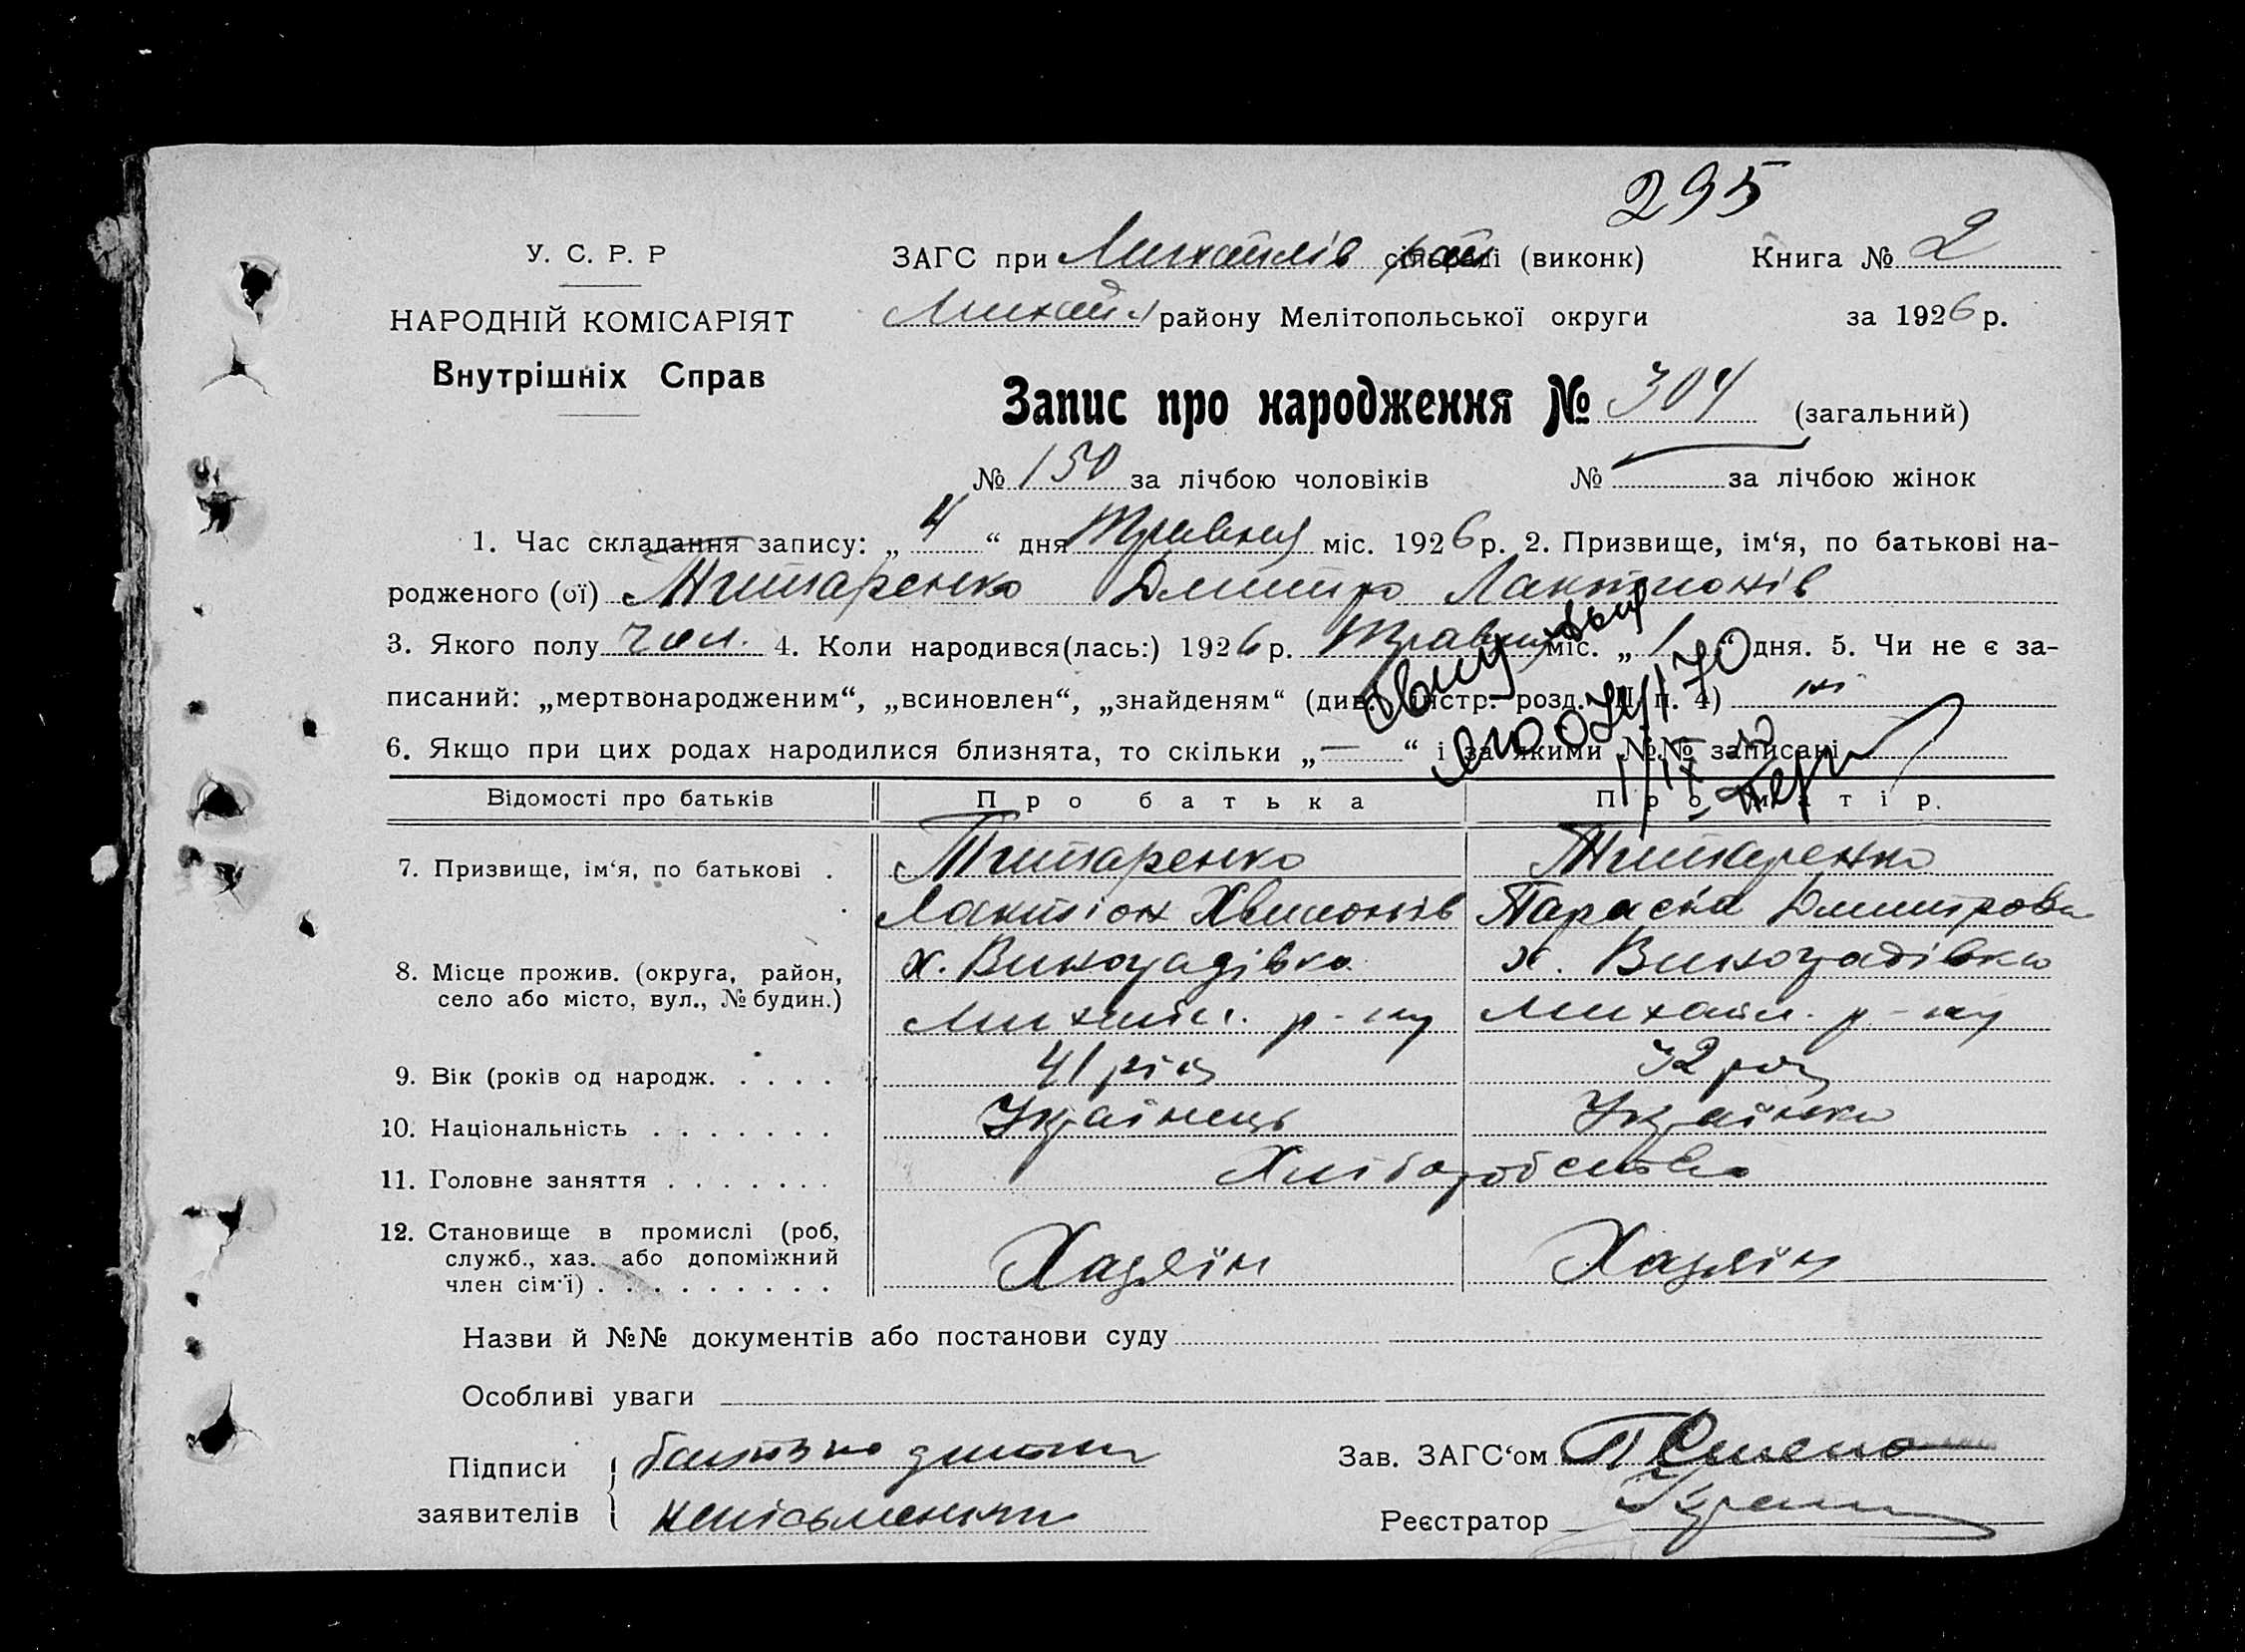 295
У. С. Р. Р
ЗАГС при Михайлів сільраді (виконк) Книга № 2
НАРОДНІЙ КОМІСАРІЯТ
Михайл району Мелітопольської округи за 1926 р.
Внутрішніх Справ
Запис про народження № 304 (загальний)
№ 150 за лічбою чоловіків № за лічбою жінок
1. Час складання запису: „ 4 “ дня Травня міс. 1926 р. 2. Призвище, ім‘я, по батькові на-
родженого (ої) Титаренко Дмитро Лактионів
3. Якого полу чол. 4. Коли народився(лась:) 1926 р. Травня міс. „ 1 “ дня. 5. Чи не є за-
писаний: „мертвонародженим“, „всиновлен“, „знайденям“ (див. інстр. розд. II п. 4) ні
6. Якщо при цих родах народилися близнята, то скільки „—“ і за якими №№ записані
Відомості про батьків Про батька Про матір.
7. Призвище, ім‘я, по батькові . Титаренко Титаренко
Лактіон Хвионів Параска Дмитрова
8. Місце прожив. (округа, район, х. Виноградівка х. Виноградівка
село або місто, вул., № будин.) Михайл. р-ну Михайл. р-ну
9. Вік (років од народж. . . . . 41 рік 32 роки
10. Національність . . . . . . . Українець Українка
11. Головне заняття . . . . . . . Хліборобство
12. Становище в промислі (роб,
служб., хаз. або допоміжний Хазяїн Хазяїн
член сім‘ї) . . . . . . . . .
Назви й №№ документів або постанови суду
Особливі уваги
Підписи батько дитини Зав. ЗАГС‘ом
заявителів неписьменний Реєстратор